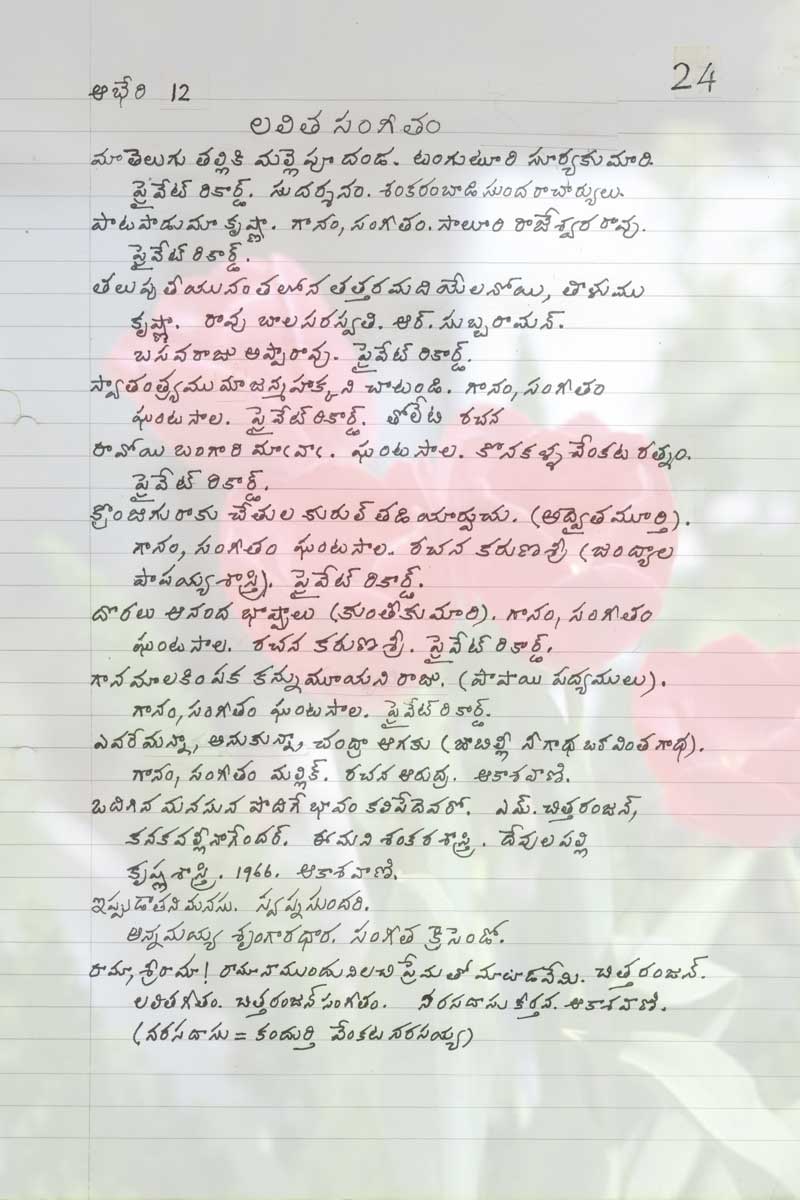 24
ఆభేరి 12
లలిత సంగీతం
మా తెలుగు తల్లికి మల్లెపూ దండ. టంగుటూరి సూర్యకుమారి.
ప్రైవేట్ రికార్డ్. సుదర్శనం. శంకరంబాడి సుందరాచార్యులు.
పాటపాడుమా కృష్ణా. గానం, సంగీతం. సాలూరి రాజేశ్వర రావు.
ప్రైవేట్ రికార్డ్.
తలుపు తీయునంతలోన తత్తరమది యేలనోయి, తాళుము
కృష్ణా. రావు బాలసరస్వతి. ఆర్. సుబ్బరామన్.
బసవరాజు అప్పారావు. ప్రైవేట్ రికార్డ్.
స్వాతంత్ర్యము మా జన్మహక్కని చాటండి. గానం, సంగీతం
ఘంటసాల. ప్రైవేట్ రికార్డ్. తోలేటి రచన
రావోయి బంగారి మాఁవాఁ. ఘంటసాల. కొనకళ్ళ వేంకట రత్నం.
ప్రైవేట్ రికార్డ్.
క్రొంజిగురాకు చేతుల కురుల్ తడి యార్పుచు. (అద్వైతమూర్తి).
గానం, సంగీతం ఘంటసాల. రచన కరుణశ్రీ (జంధ్యాల
పాపయ్యశాస్త్రి). ప్రైవేట్ రికార్డ్.
దొరలు ఆనంద భాష్పాలు (కుంతీకుమారి). గానం, సంగీతం
ఘంటసాల. రచన కరుణశ్రీ. ప్రైవేట్ రికార్డ్.
గానమాలకింపక కన్నుమూయని రాజు. (పాపాయి పద్యములు).
గానం, సంగీతం ఘంటసాల. ప్రైవేట్ రికార్డ్.
ఎవరేమన్నా, అనుకున్నా, చంద్రా ఆగకు (జాబిల్లీ నీగాథ ఒక వింత గాథ).
గానం, సంగీతం మల్లిక్. రచన ఆరుద్ర. ఆకాశవాణి.
ఒదిగిన మనసున పొదిగే భావం కలిపేదెవరో. ఎమ్. చిత్తరంజన్,
కనకవల్లీ నాగేందర్. ఈమని శంకరశాస్త్రి. దేవులపల్లి
కృష్ణశాస్త్రి. 1966. ఆకాశవాణి.
ఇప్పుడాతని మనసు. స్వప్నసుందరి.
అన్నమయ్య శృంగారధార. సంగీత క్రెసెండో.
రామా, శ్రీరామా! రామా నాముందు నిలచి ప్రేమతో మాటాడవేమి. చిత్తరంజన్.
లలితగీతం. చిత్తరంజన్ సంగీతం. నరసదాసు కీర్తన. ఆకాశవాణి.
(నరసదాసు = కందుర్తి వేంకట నరసయ్య)